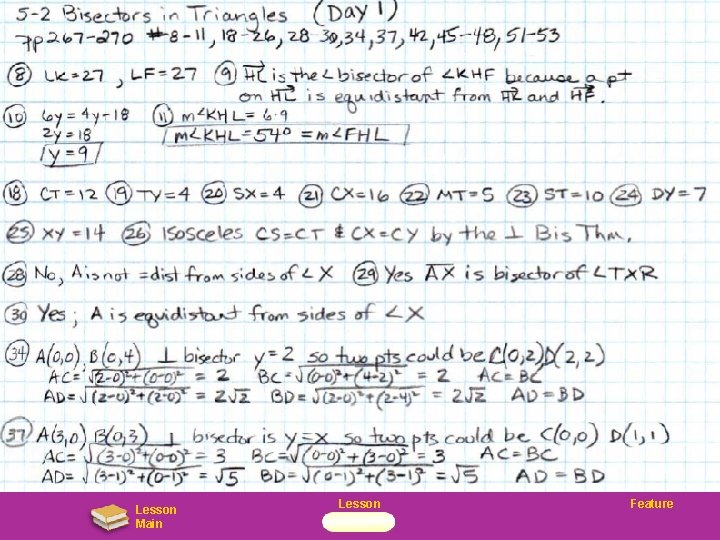 5-2 Bisectors in Triangles (Day 1)
pp 267-270 #8-11, 18-26, 28 30, 34, 37, 42, 45-48, 51-53
⑧ LK=27, LF=27 ⑨ HL is the ∠ bisector of ∠KHF because a pt
on HL is equidistant from HK and HF.
⑩ 6y = 4y-18 ⑪ m∠KHL = 6·9
2y = 18 m∠KHL = 54° = m∠FHL
y = 9
⑱ CT=12 ⑲ TY=4 ⑳ SX=4 ㉑ CX=16 ㉒ MT=5 ㉓ ST=10 ㉔ DY=7
㉕ XY=14 ㉖ Isosceles CS=CT & CX=CY by the ⊥ Bis Thm.
㉘ No, A is not =dist from sides of ∠X ㉙ Yes AX is bisector of ∠TXR
㉚ Yes; A is equidistant from sides of ∠X
㉞ A(0,0), B(0,4) ⊥ bisector y=2 so two pts could be C(0,2), D(2,2)
AC=√(2-0)²+(0-0)² = 2 BC=√(0-0)²+(4-2)² = 2 AC=BC
AD=√(2-0)²+(2-0)² = 2√2 BD=√(2-0)²+(2-4)² = 2√2 AD=BD
㊲ A(3,0) B(0,3) ⊥ bisector is y=x so two pts could be C(0,0) D(1,1)
AC=√(3-0)²+(0-0)² = 3 BC=√(0-0)²+(3-0)² = 3 AC=BC
AD=√(3-1)²+(0-1)² = √5 BD=√(0-1)²+(3-1)² = √5 AD=BD
Lesson Main
Lesson
Feature